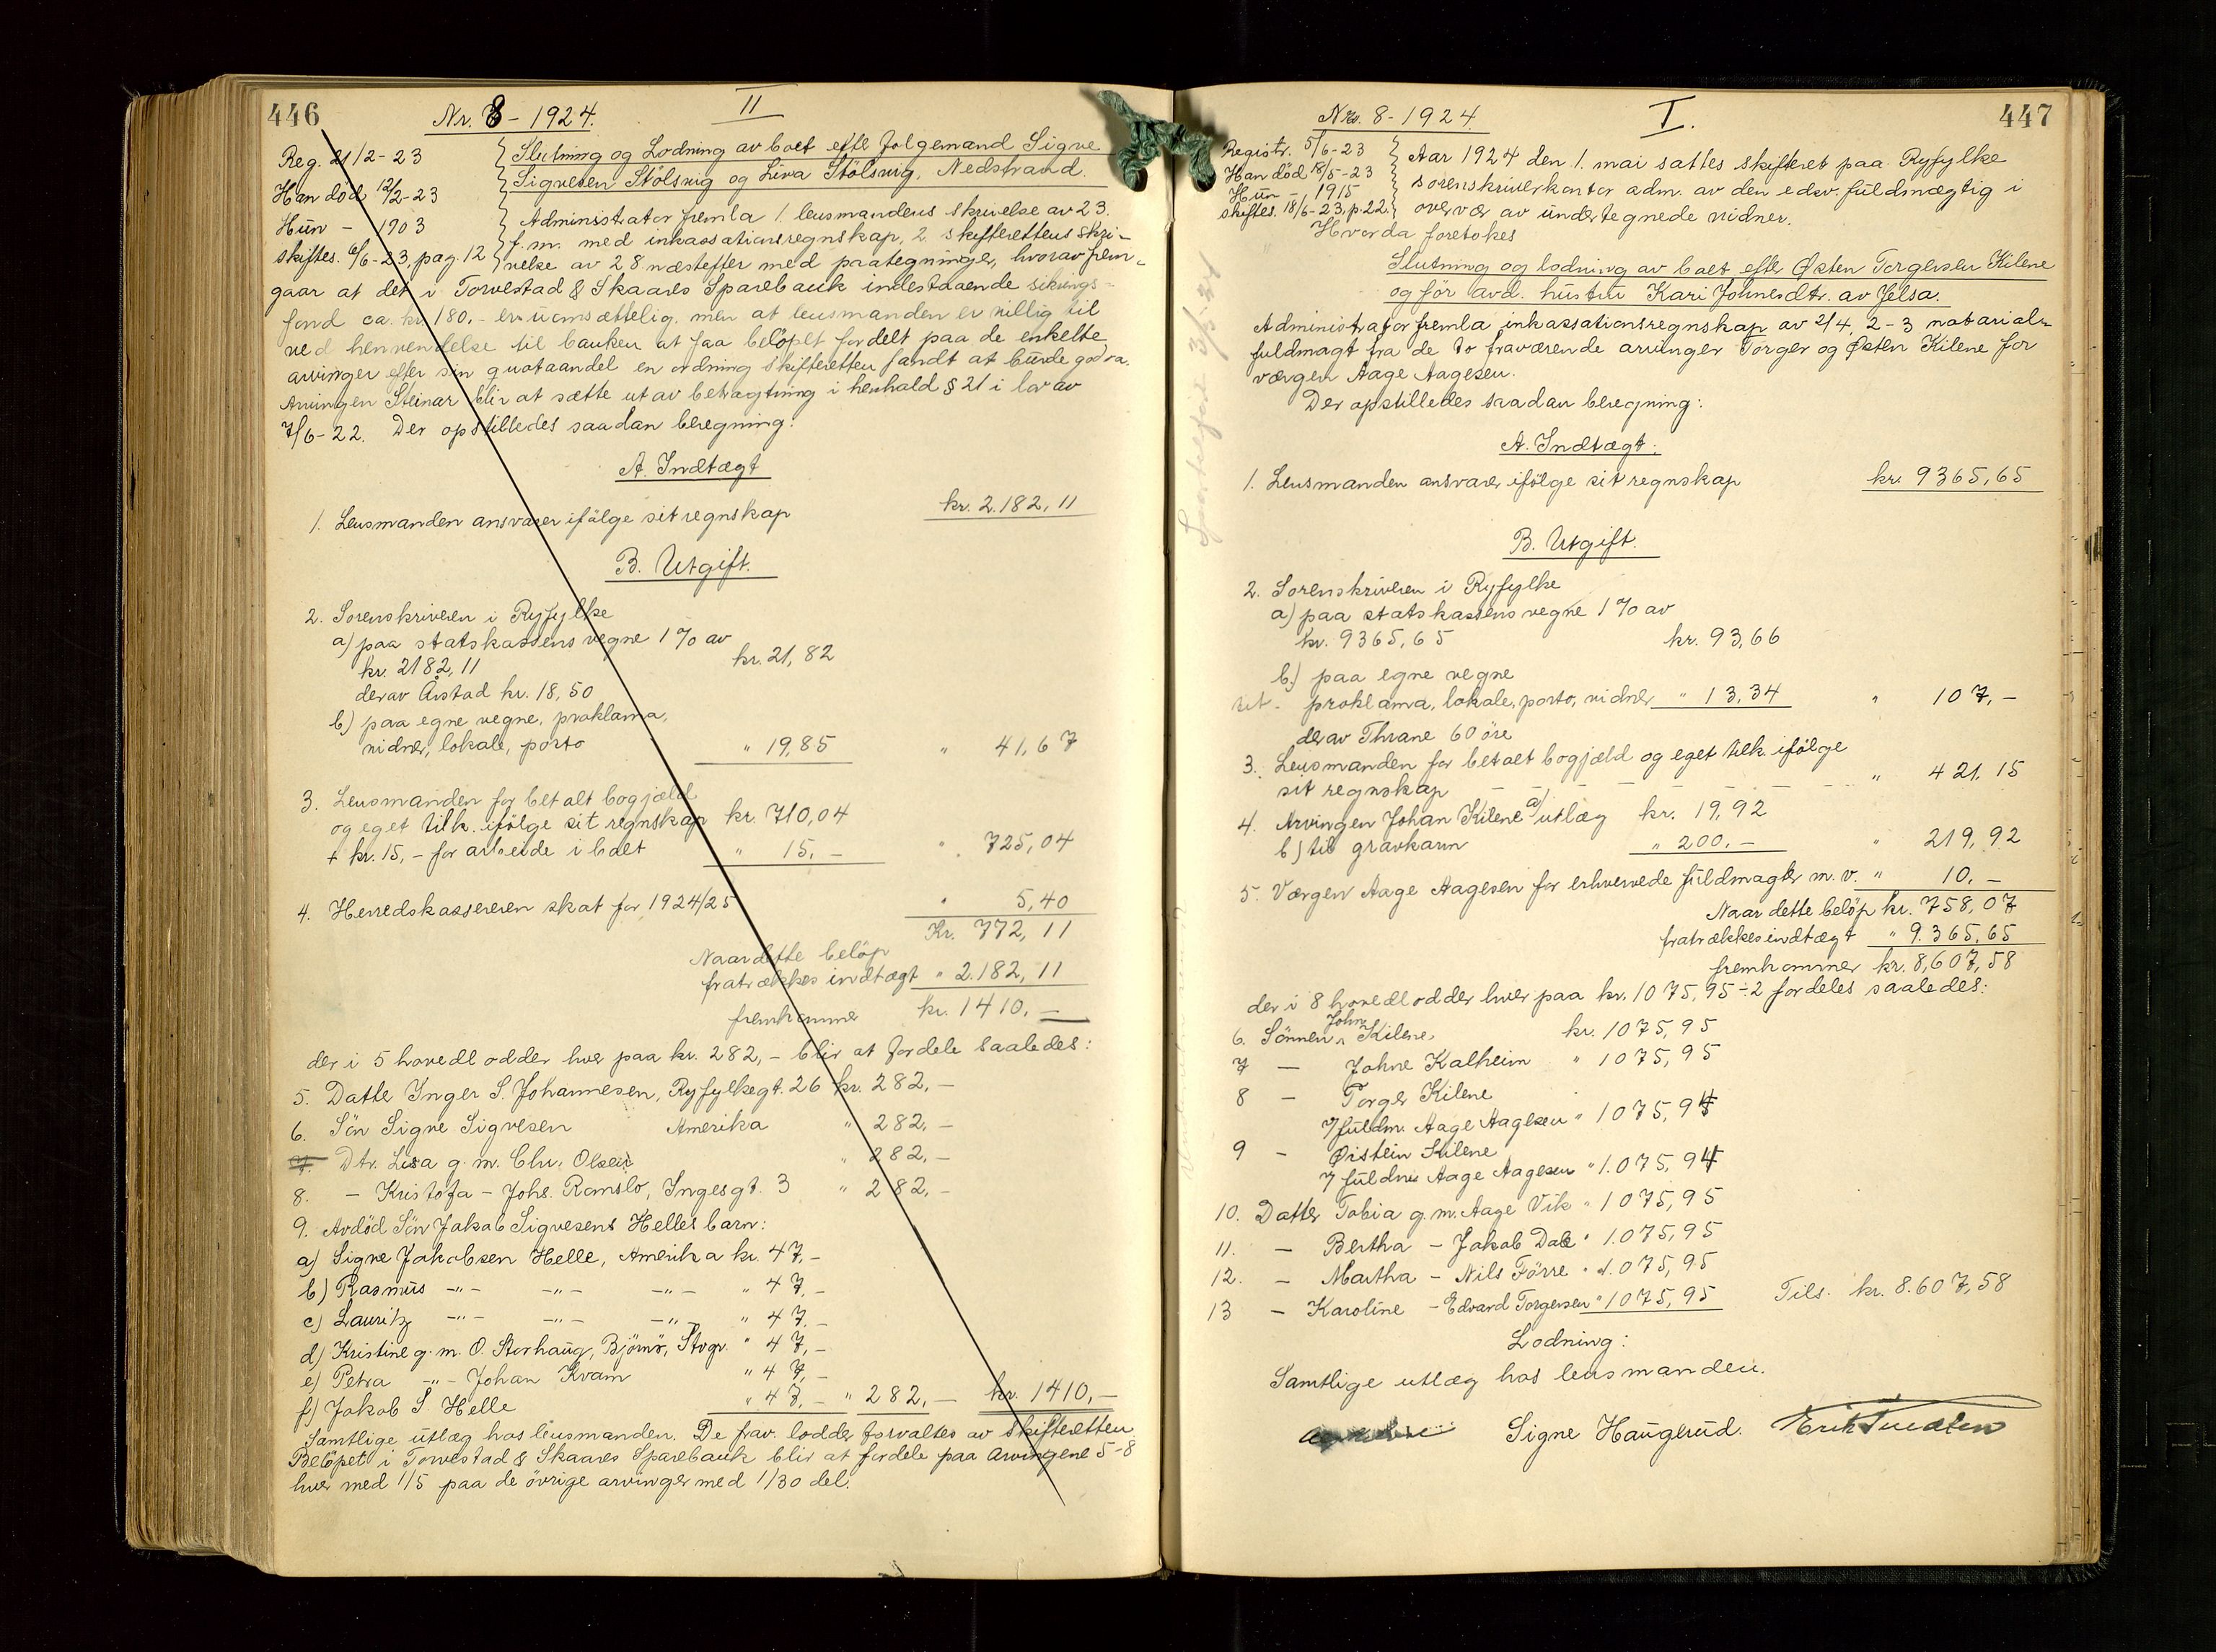 446
Nr. 8 - 1924.
II
Reg. 21/2 - 23
Han död 12/2 - 23
Hun - 1903
Skiftes. 6/6 - 23, pag. 12
Slutning og Lodning av boet efter Folgemand Sigve
Sigvesen Stölsvig og Liva Stölsvig, Nedstrand.
Administrator fremla 1. lensmandens skrivelse av 23.
f.m. med inkassationsregnskap, 2. skifterettens skri-
velse av 28 næstefter med paategninger, hvorav frem-
gaar at det i Torvestad & Skaares Sparebank indestaaende sikrings-
fond ca. kr. 180.- er uomsættelig. men at lensmanden er villig til
ved henvendelse til banken at faa belöpet fordelt paa de enkelte
arvinger efter sin quotaandel en ordning skifteretten fandt at burde godta.
Arvingen Steinar blir at sætte ut av betragtning i henhold § 21 i lov av
7/6 - 22. Der opstilledes saadan beregning:
A. Indtægt
1. Lensmanden ansvarer ifölge sit regnskap kr. 2.182,11
B. Utgift.
2. Sorenskriveren i Ryfylke
a) paa statskassens vegne 1 % av
kr. 2182,11 kr. 21,82
derav Årstad kr. 18,50
b) paa egne vegne, proklama,
vidner, lokale, porto " 19,85 " 41,67
3. Lensmanden for betalt bogjæld
og eget tilk. ifölge sit regnskap kr. 710,04
+ kr. 15,- for arbeide i boet " 15.- " 725,04
4. Herredskassereren skat for 1924/25 " 5,40
Kr. 772,11
Naar dette belöp
fratrækkes indtægt " 2.182,11
fremkommer kr. 1410.-
der i 5 hovedlodder hver paa kr. 282,- blir at fordele saaledes:
5. Datter Inger S. Johannesen, Ryfylkegt. 26 kr. 282,-
6. Sön Sigve Sigvesen Amerika " 282,-
7. Dtr. Lisa g.m. Chr. Olsen " 282,-
8. - Kristofa - Johs. Ramslo, Ingesgt. 3 " 282,-
9. Avdöd Sön Jakob Sigvesens Helles barn:
a) Sigve Jakobsen Helle, Amerika kr. 47,-
b) Rasmus -"- -"- -"- " 47,-
c) Lauritz -"- -"- -"- " 47.-
d) Kristine g.m. O. Storhaug, Björnö, Stvgr. " 47,-
e) Petra -"- Johan Kvam " 47,-
f) Jakob S. Helle " 47,- " 282,- kr. 1410,-
Samtlige utlæg hos lensmanden. De frav. lodder forvaltes av skifteretten
Belöpet i Torvestad & Skaares Sparebank blir at fordele paa Arvingene 5-8
hver med 1/5 paa de övrige arvinger med 1/30 del.
447
Nr. 8 - 1924.
I.
Registr. 5/6 - 23
Han död 18/5 - 23
Hun - 1915
skiftes. 18/6 - 23, p. 22.
Aar 1924 den 1. mai sattes skifteret paa Ryfylke
sorenskriverkontor adm. av den edsv. fuldmægtig i
overvær av undertegnede vidner.
Hvorda foretokes
Slutning og lodning av boet efter Østen Torgersen Kilene
og för avd. hustru Kari Johnesdtr. av Jelsa.
Administrator fremla inkassationsregnskap av 2/4, 2-3 notarial-
fuldmagt fra de to fraværende arvinger Torger og Østen Kilene for
værgen Aage Aagesen.
Der opstilledes saadan beregning:
A. Indtægt.
1. Lensmanden ansvarer ifölge sit regnskap kr. 9365,65
B. Utgift.
2. Sorenskriveren i Ryfylke
a) paa statskassens vegne 1 % av
kr. 9365,65 kr. 93,66
b.) paa egne vegne
proklama, lokale, porto, vidner " 13,34 " 107,-
derav Thrane 60 öre
3. Lensmanden for betalt bogjæld og eget tilk. ifölge
sit regnskap - - - - - - - " 421,15
4. Arvingen Johan Kilene a) utlæg kr. 19,92
b) til gravkarm " 200.- " 219,92
5. Værgen Aage Aagesen for erhvervede fuldmagter m.v. " 10.-
Naar dette belöp kr. 758,07
fratrækkes indtægt " 9.365,65
fremkommer kr. 8,607,58
der i 8 hovedlodder hver paa kr. 1075,95 ÷ 2 fordeles saaledes:
6. Sönnen John Kilene, kr. 1075,95
7 - Johne Kalheim " 1075,95
8 - Torger Kilene
v/ fuldm. Aage Aagesen " 1075,94
9 - Øistein Kilene
v/ fuldm. Aage Aagesen " 1.075,94
10. Datter Tobia g.m. Aage Vik " 1075,95
11. - Bertha - Jakob Dale " 1.075,95
12. - Martha - Nils Förre " 1.075,95
13 - Karoline - Edvard Torgersen " 1075,95 Tils. kr. 8.607,58
Lodning:
Samtlige utlæg hos lensmanden.
Signe Haugerud.